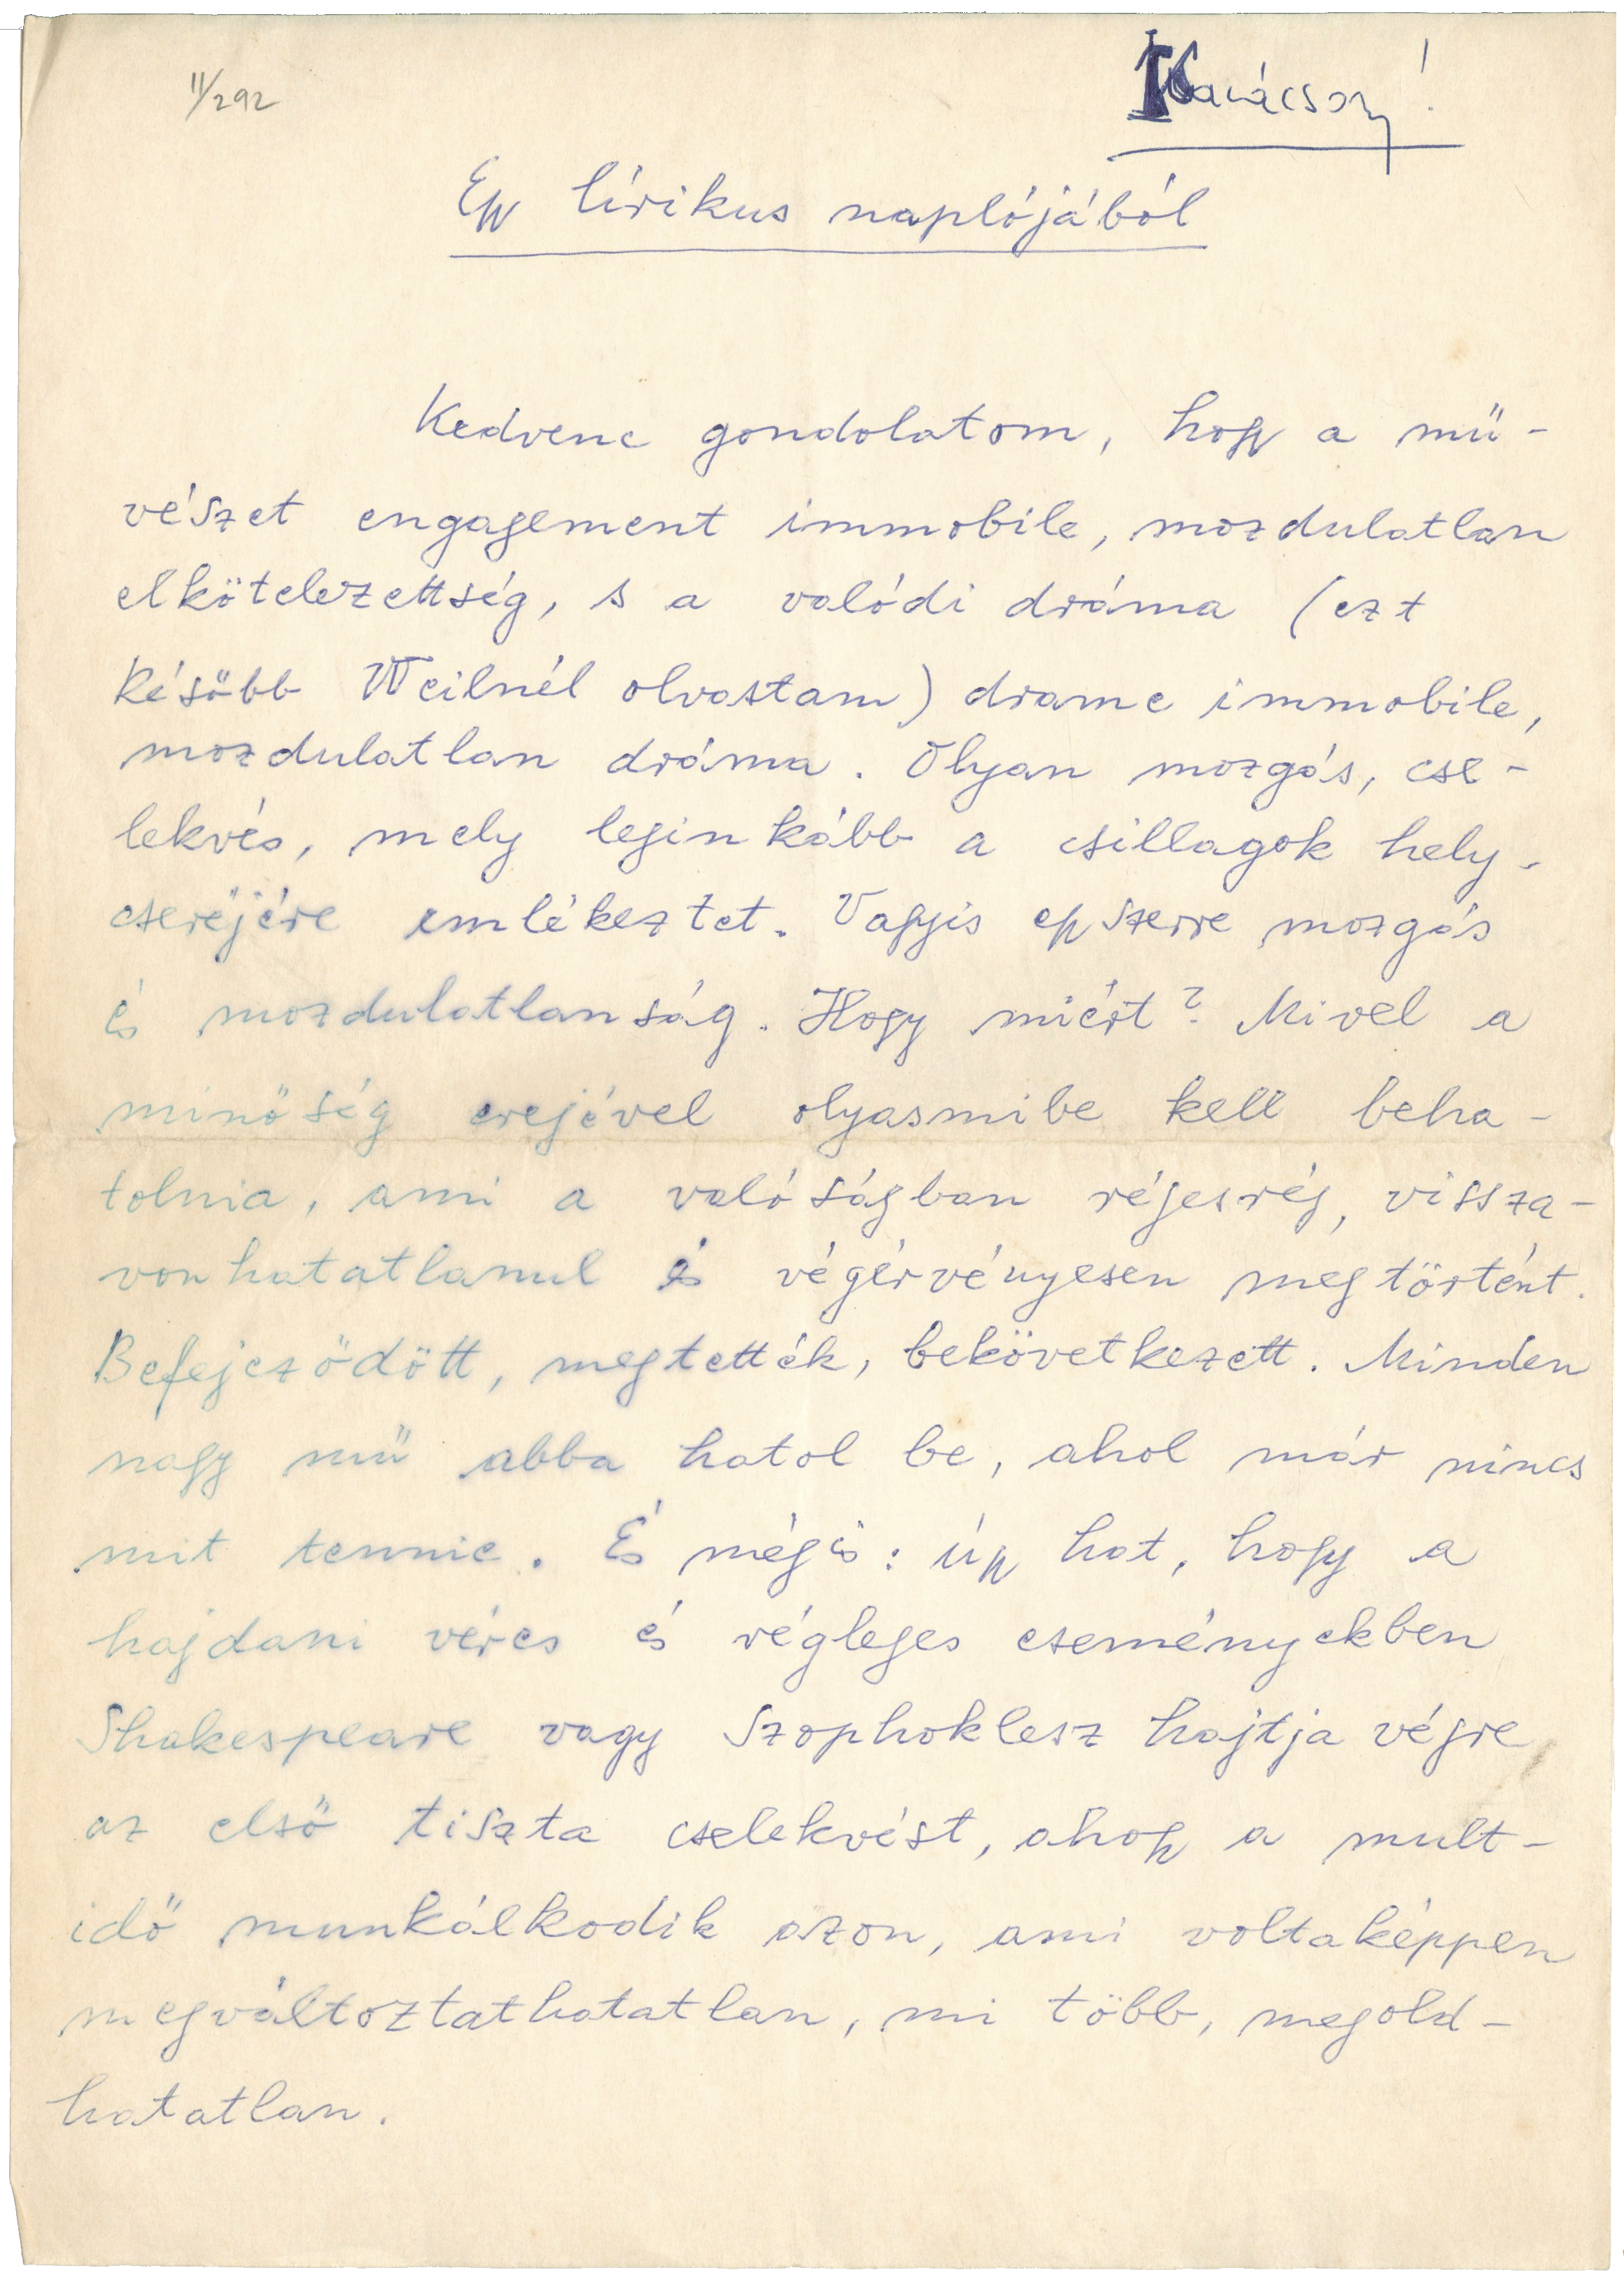 II/292
Karácsony!
Egy lírikus naplójából
Kedvenc gondolatom, hogy a mü-
vészet engagement immobile, mozdulatlan
elkötelezettség, s a valódi dráma (ezt
később Weilnél olvastam) drame immobile,
mozdulatlan dráma. Olyan mozgás, cse-
lekvés, mely leginkább a csillagok hely-
cseréjére emlékeztet. Vagyis egyszerre mozgás
és mozdulatlanság. Hogy miért? Mivel a
minőség erejével olyasmibe kell beha-
tolnia, ami a valóságban régesrég, vissza-
vonhatatlanul és végérvényesen megtörtént.
Befejeződött, megtették, bekövetkezett. Minden
nagy mű abba hatol be, ahol már nincs
mit tennie. És mégis: úgy hat, hogy a
hajdani véres és végleges eseményekben
Shakespeare vagy Szophoklesz hajtja végre
az első tiszta cselekvést, ahogy a mult-
idő munkálkodik azon, ami voltaképpen
megváltoztathatatlan, mi több, megold-
hatatlan.